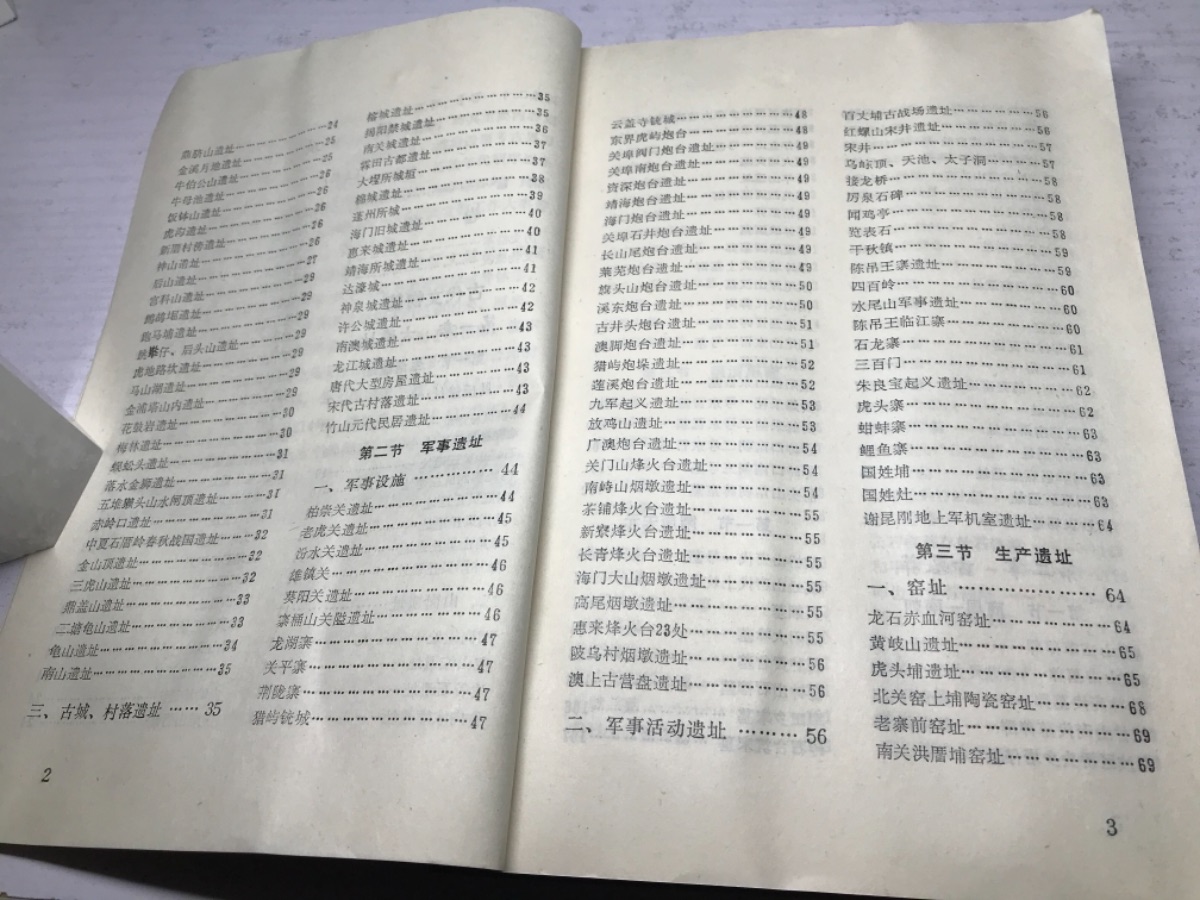 鼎脐山遗址………………24
金溪月池遗址……………25
牛伯公山遗址……………25
牛母池遗址………………26
饭钵山遗址………………26
虎沟遗址…………………26
新厝村傍遗址……………26
神山遗址…………………26
后山遗址…………………27
宫科山遗址………………29
鹧鸪垢遗址………………29
跑马埔遗址………………29
后头山遗址……………29
虎地路坎遗址……………29
马山湖遗址………………29
金浦塔山内遗址…………29
花装岩遗址………………30
梅林遗址…………………30
蜈蚣头遗址………………31
落水金狮遗址……………31
五堆猴头山水闸顶遗址………31
赤岭口遗址………………31
中夏石厝岭春秋战国遗址………32
金山顶遗址………………32
三虎山遗址………………32
鼎盖山遗址………………33
二塘龟山遗址……………33
龟山遗址…………………34
南山遗址…………………35
三、古城、村落遗址 ……35
2
榕城遗址…………………35
揭阳禁城遗址……………35
南关城遗址………………36
霖田古都遗址……………37
大埕所城垣………………37
棉城遗址…………………38
蓬州所城…………………39
海门旧城遗址……………40
惠来城遗址………………40
靖海所城遗址……………41
达濠城……………………41
神泉城遗址………………42
许公城遗址………………42
南澳城遗址………………43
龙江城遗址………………43
唐代大型房屋遗址………43
宋代古村落遗址…………43
竹山元代民居遗址………44
第二节 军事遗址
一、军事设施 …………44
柏崇关遗址………………44
老虎关遗址………………45
汾水关遗址………………45
雄镇关……………………46
葵阳关遗址………………46
寨桶山关隘遗址…………46
龙湖寨……………………47
关平寨……………………47
荆陇寨……………………47
猎屿铳城…………………47
云盖寺铳城………………48
东界虎屿炮台……………48
关埠阀门炮台遗址………49
关埠南炮台遗址…………49
赀深炮台遗址……………49
靖海炮台遗址……………49
海门炮台遗址……………49
关埠石井炮台遗址………49
长山尾炮台遗址…………49
莱芜炮台遗址……………49
旗头山炮台遗址…………50
溪东炮台遗址……………50
古井头炮台遗址…………51
澳脚炮台遗址……………51
猎屿炮垛遗址……………52
莲溪炮台遗址……………52
九军起义遗址……………53
放鸡山遗址………………53
广澳炮台遗址……………54
关门山烽火台遗址………54
南峙山烟墩遗址…………54
茶铺烽火台遗址…………55
新寮烽火台遗址…………55
长青烽火台遗址…………55
海门大山烟墩遗址………55
高尾烟墩遗址……………55
惠来烽火台23处…………55
陂乌村烟墩遗址…………56
澳上古营盘遗址…………56
二、军事活动遗址 ………56
百丈埔古战场遗址………56
红螺山宋井遗址…………56
宋井………………………57
乌崠顶、天池、太子洞………57
接龙桥……………………58
厉泉石碑…………………58
闻鸡亭……………………58
览表石……………………59
千秋镇……………………59
陈吊王寨遗址……………59
四百岭……………………60
水尾山军事遗址…………60
陈吊王临江寨……………60
石龙寨……………………61
三百门……………………61
朱良宝起义遗址…………62
虎头寨……………………62
蚶蚌寨……………………63
鲤鱼寨……………………63
国姓埔……………………63
国姓灶……………………63
谢昆刚地上军机室遗址………64
第三节 生产遗址
一、窑址 ………………64
龙石赤血河窑址…………64
黄岐山遗址………………65
虎头埔遗址………………65
北关窑上埔陶瓷窑址………68
老寨前窑址………………69
南关洪厝埔窑址…………69
3